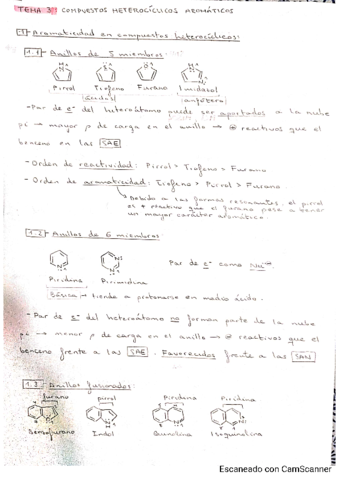 TEMA 3: COMPUESTOS HETEROCÍCLICOS AROMÁTICOS
1- Aromaticidad en compuestos heterocíclicos:
1.1- Anillos de 5 miembros:
Pirrol Tiofeno Furano Imidazol
(ácidos) (anfótero)
- Par de e- del heteroátomo puede ser aportados a la nube
pi → mayor ρ de carga en el anillo → ⊕ reactivos que el
benceno en las SAE
- Orden de reactividad: Pirrol > Tiofeno > Furano
- Orden de aromaticidad: Tiofeno > Pirrol > Furano
Debido a las formas resonantes, el pirrol
es + reactivo que el furano pese a tener
un mayor carácter aromático.
1.2- Anillos de 6 miembros:
Par de e- como
Piridina Pirimidina
Básica: tiende a protonarse en medio ácido.
- Par de e- del heteroátomo no forman parte de la nube
pi → menor ρ de carga en el anillo → ⊖ reactivos que el
benceno frente a las SAE. Favorecidos frente a las SAN
1.3- Anillos fusionados:
furano pirrol Piridina Piridina
Benzofurano Indol Quinolina Isoquinolina
Escaneado con CamScanner